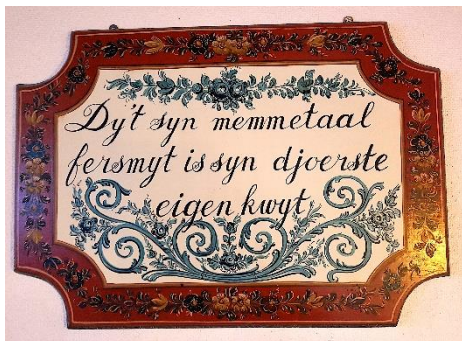 Dy't syn memmetaal
fersmyt is syn djoerste
eigen kwyt